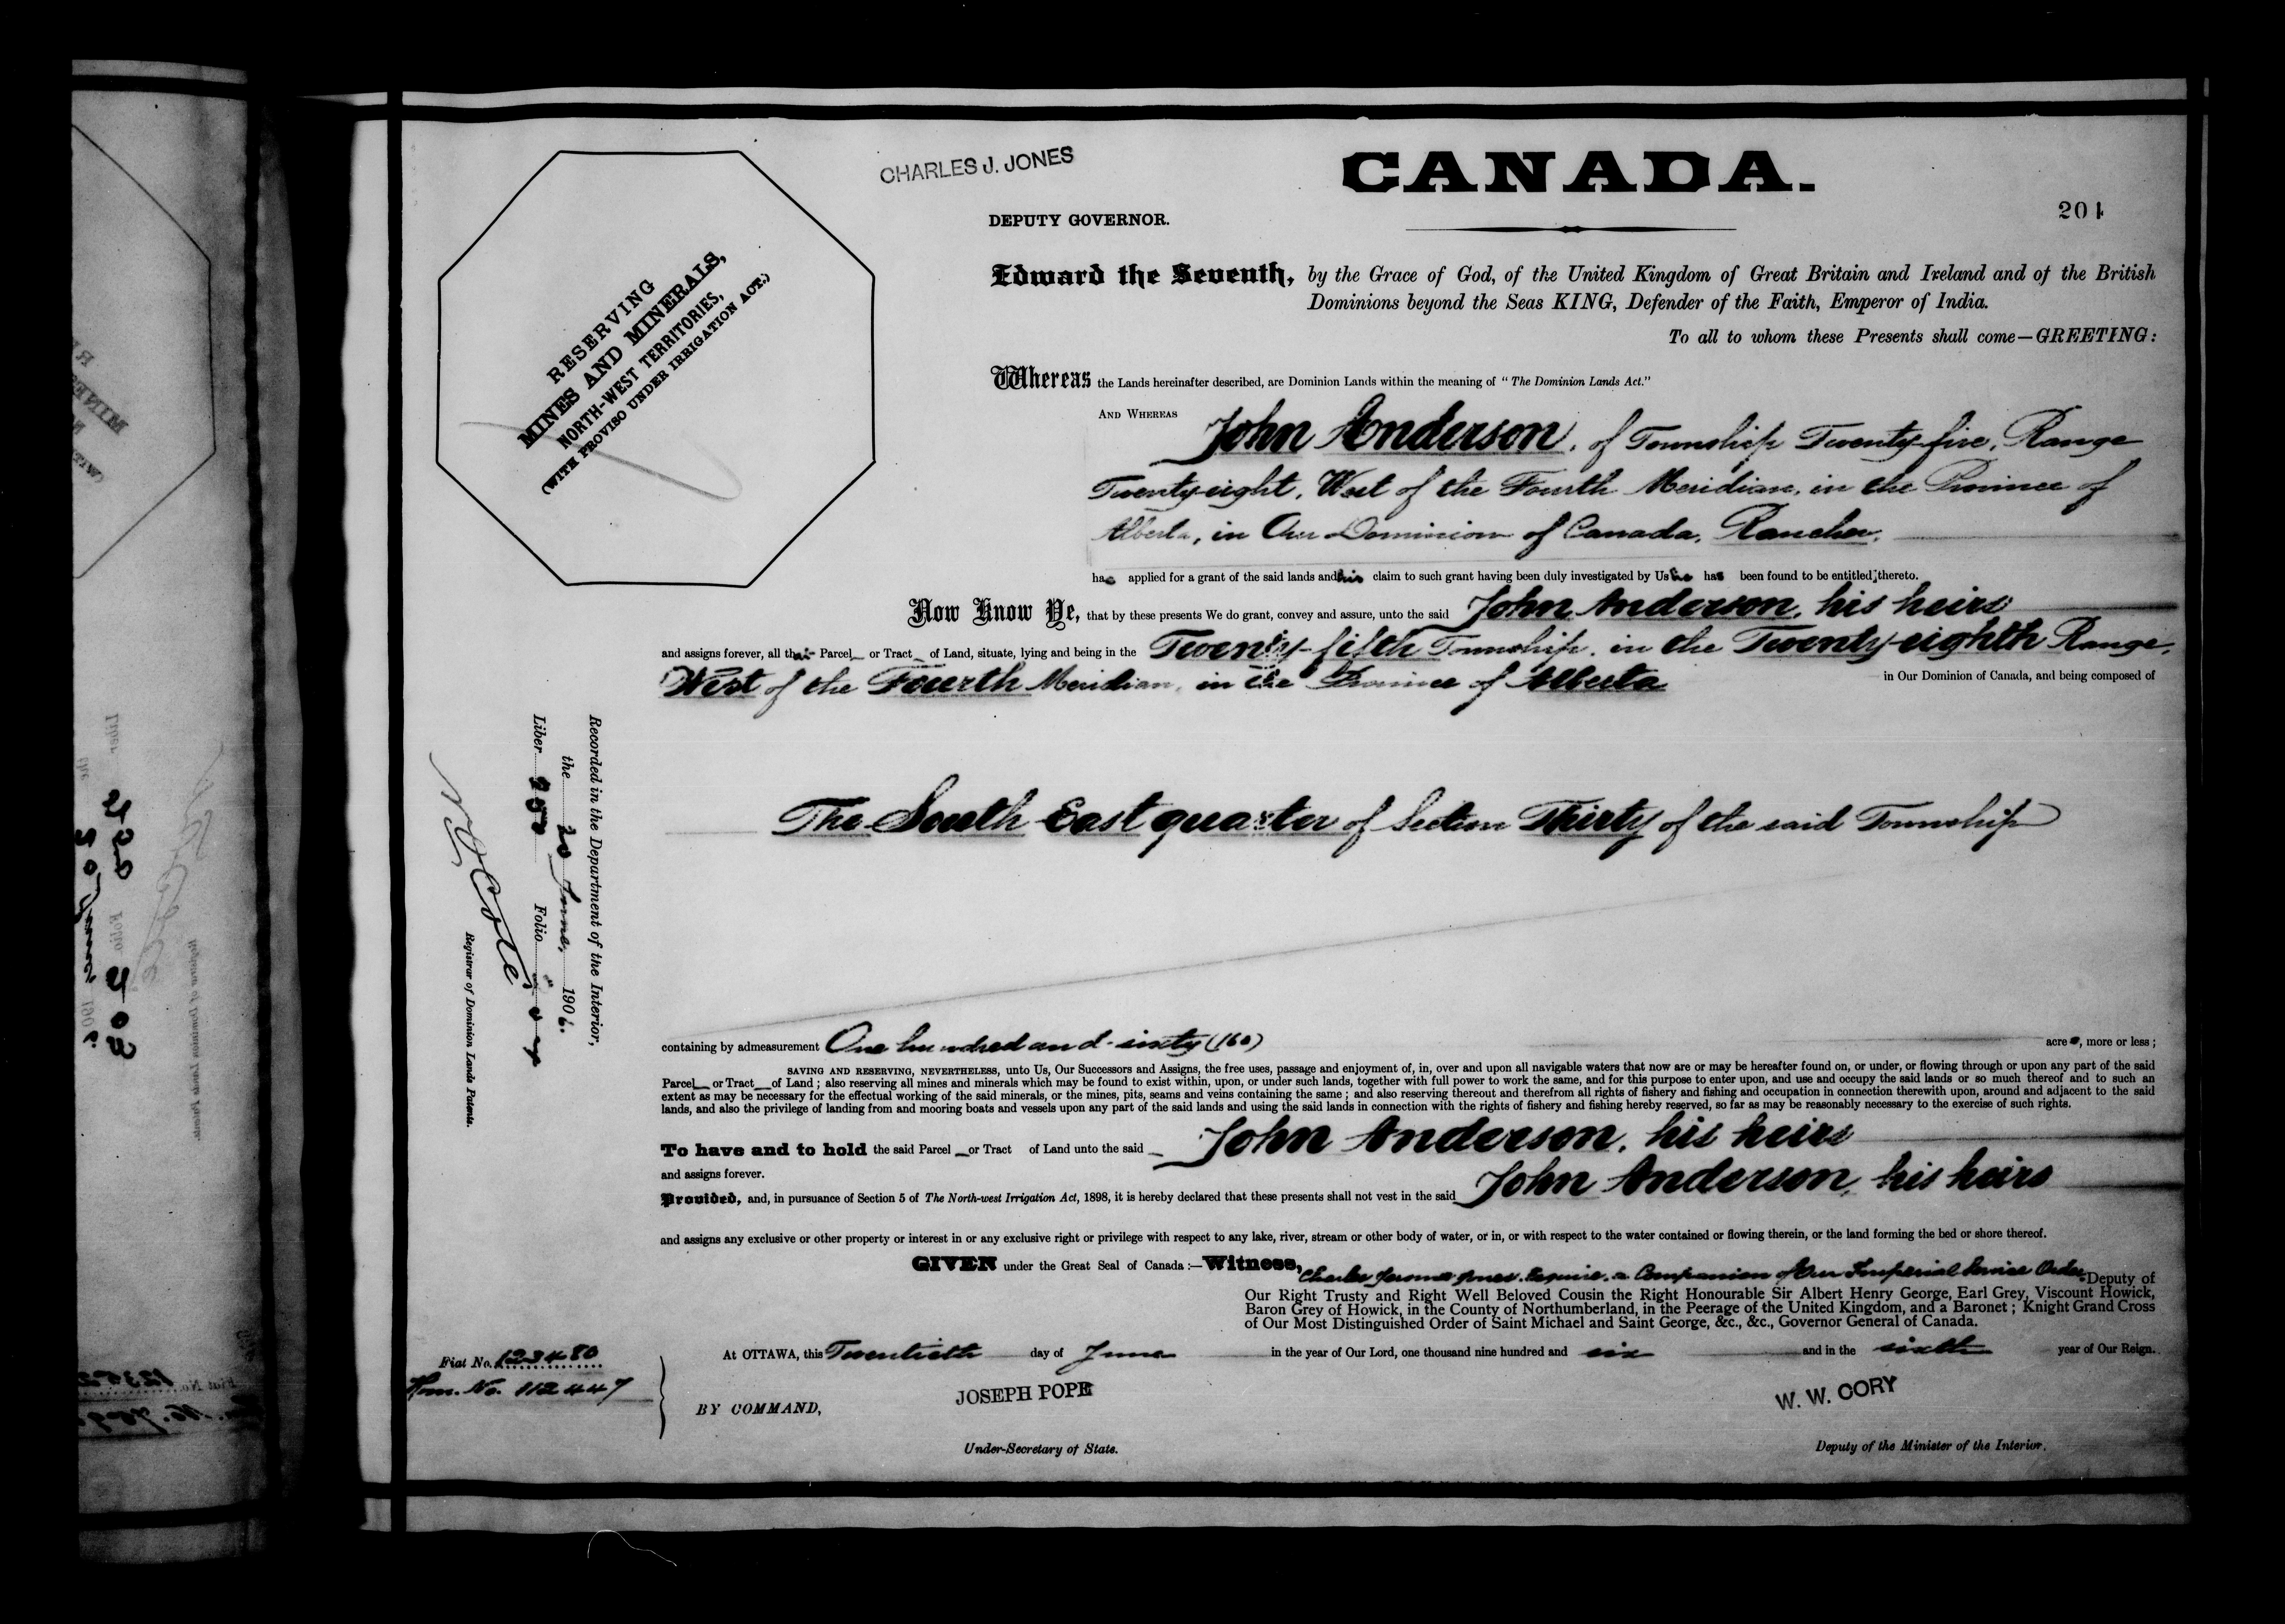 CHARLES J. JONES
CANADA.
DEPUTY GOVERNOR.
201
RESERVING
MINES AND MINERALS,
NORTH-WEST TERRITORIES,
(WITH PROVISO UNDER IRRIGATION ACT.)
Edward the Seventh, by the Grace of God, of the United Kingdom of Great Britain and Ireland and of the British
Dominions beyond the Seas KING, Defender of the Faith, Emperor of India.
To all to whom these Presents shall come—GREETING:
Whereas the Lands hereinafter described, are Dominion Lands within the meaning of "The Dominion Lands Act."
AND WHEREAS John Anderson, of Township Twenty-five, Range
Twenty-eight, West of the Fourth Meridian, in the Province of
Alberta, in Our Dominion of Canada, Rancher,
has applied for a grant of the said lands and his claim to such grant having been duly investigated by Us he has been found to be entitled thereto.
Now Know Ye, that by these presents We do grant, convey and assure, unto the said John Anderson, his heirs
and assigns forever, all that Parcel or Tract of Land, situate, lying and being in the Twenty-fifth Township, in the Twenty-eighth Range,
West of the Fourth Meridian, in the Province of Alberta in Our Dominion of Canada, and being composed of
The South East quarter of Section Thirty of the said Township
Recorded in the Department of the Interior,
the 20 June, 1906.
Liber Folio
N O Coté
Registrar of Dominion Lands Patents.
containing by admeasurement One hundred and sixty (160) acres, more or less;
SAVING AND RESERVING, NEVERTHELESS, unto Us, Our Successors and Assigns, the free uses, passage and enjoyment of, in, over and upon all navigable waters that now are or may be hereafter found on, or under, or flowing through or upon any part of the said
Parcel or Tract of Land; also reserving all mines and minerals which may be found to exist within, upon, or under such lands, together with full power to work the same, and for this purpose to enter upon, and use and occupy the said lands or so much thereof and to such an
extent as may be necessary for the effectual working of the said minerals, or the mines, pits, seams and veins containing the same; and also reserving thereout and therefrom all rights of fishery and fishing and occupation in connection therewith upon, around and adjacent to the said
lands, and also the privilege of landing from and mooring boats and vessels upon any part of the said lands and using the said lands in connection with the rights of fishery and fishing hereby reserved, so far as may be reasonably necessary to the exercise of such rights.
To have and to hold the said Parcel or Tract of Land unto the said John Anderson, his heirs
and assigns forever.
Provided, and, in pursuance of Section 5 of The North-west Irrigation Act, 1898, it is hereby declared that these presents shall not vest in the said John Anderson, his heirs
and assigns any exclusive or other property or interest in or any exclusive right or privilege with respect to any lake, river, stream or other body of water, or in, or with respect to the water contained or flowing therein, or the land forming the bed or shore thereof.
GIVEN under the Great Seal of Canada:—Witness, Charles Jerome Jones, Esquire, a Companion of Our Imperial Service Order, Deputy of
Our Right Trusty and Right Well Beloved Cousin the Right Honourable Sir Albert Henry George, Earl Grey, Viscount Howick,
Baron Grey of Howick, in the County of Northumberland, in the Peerage of the United Kingdom, and a Baronet; Knight Grand Cross
of Our Most Distinguished Order of Saint Michael and Saint George, &c., &c., Governor General of Canada.
Fiat No. 123480
Hom. No. 112447
At OTTAWA, this Twentieth day of June in the year of Our Lord, one thousand nine hundred and six and in the sixth year of Our Reign.
BY COMMAND,
JOSEPH POPE
W. W. CORY
Under-Secretary of State.
Deputy of the Minister of the Interior.